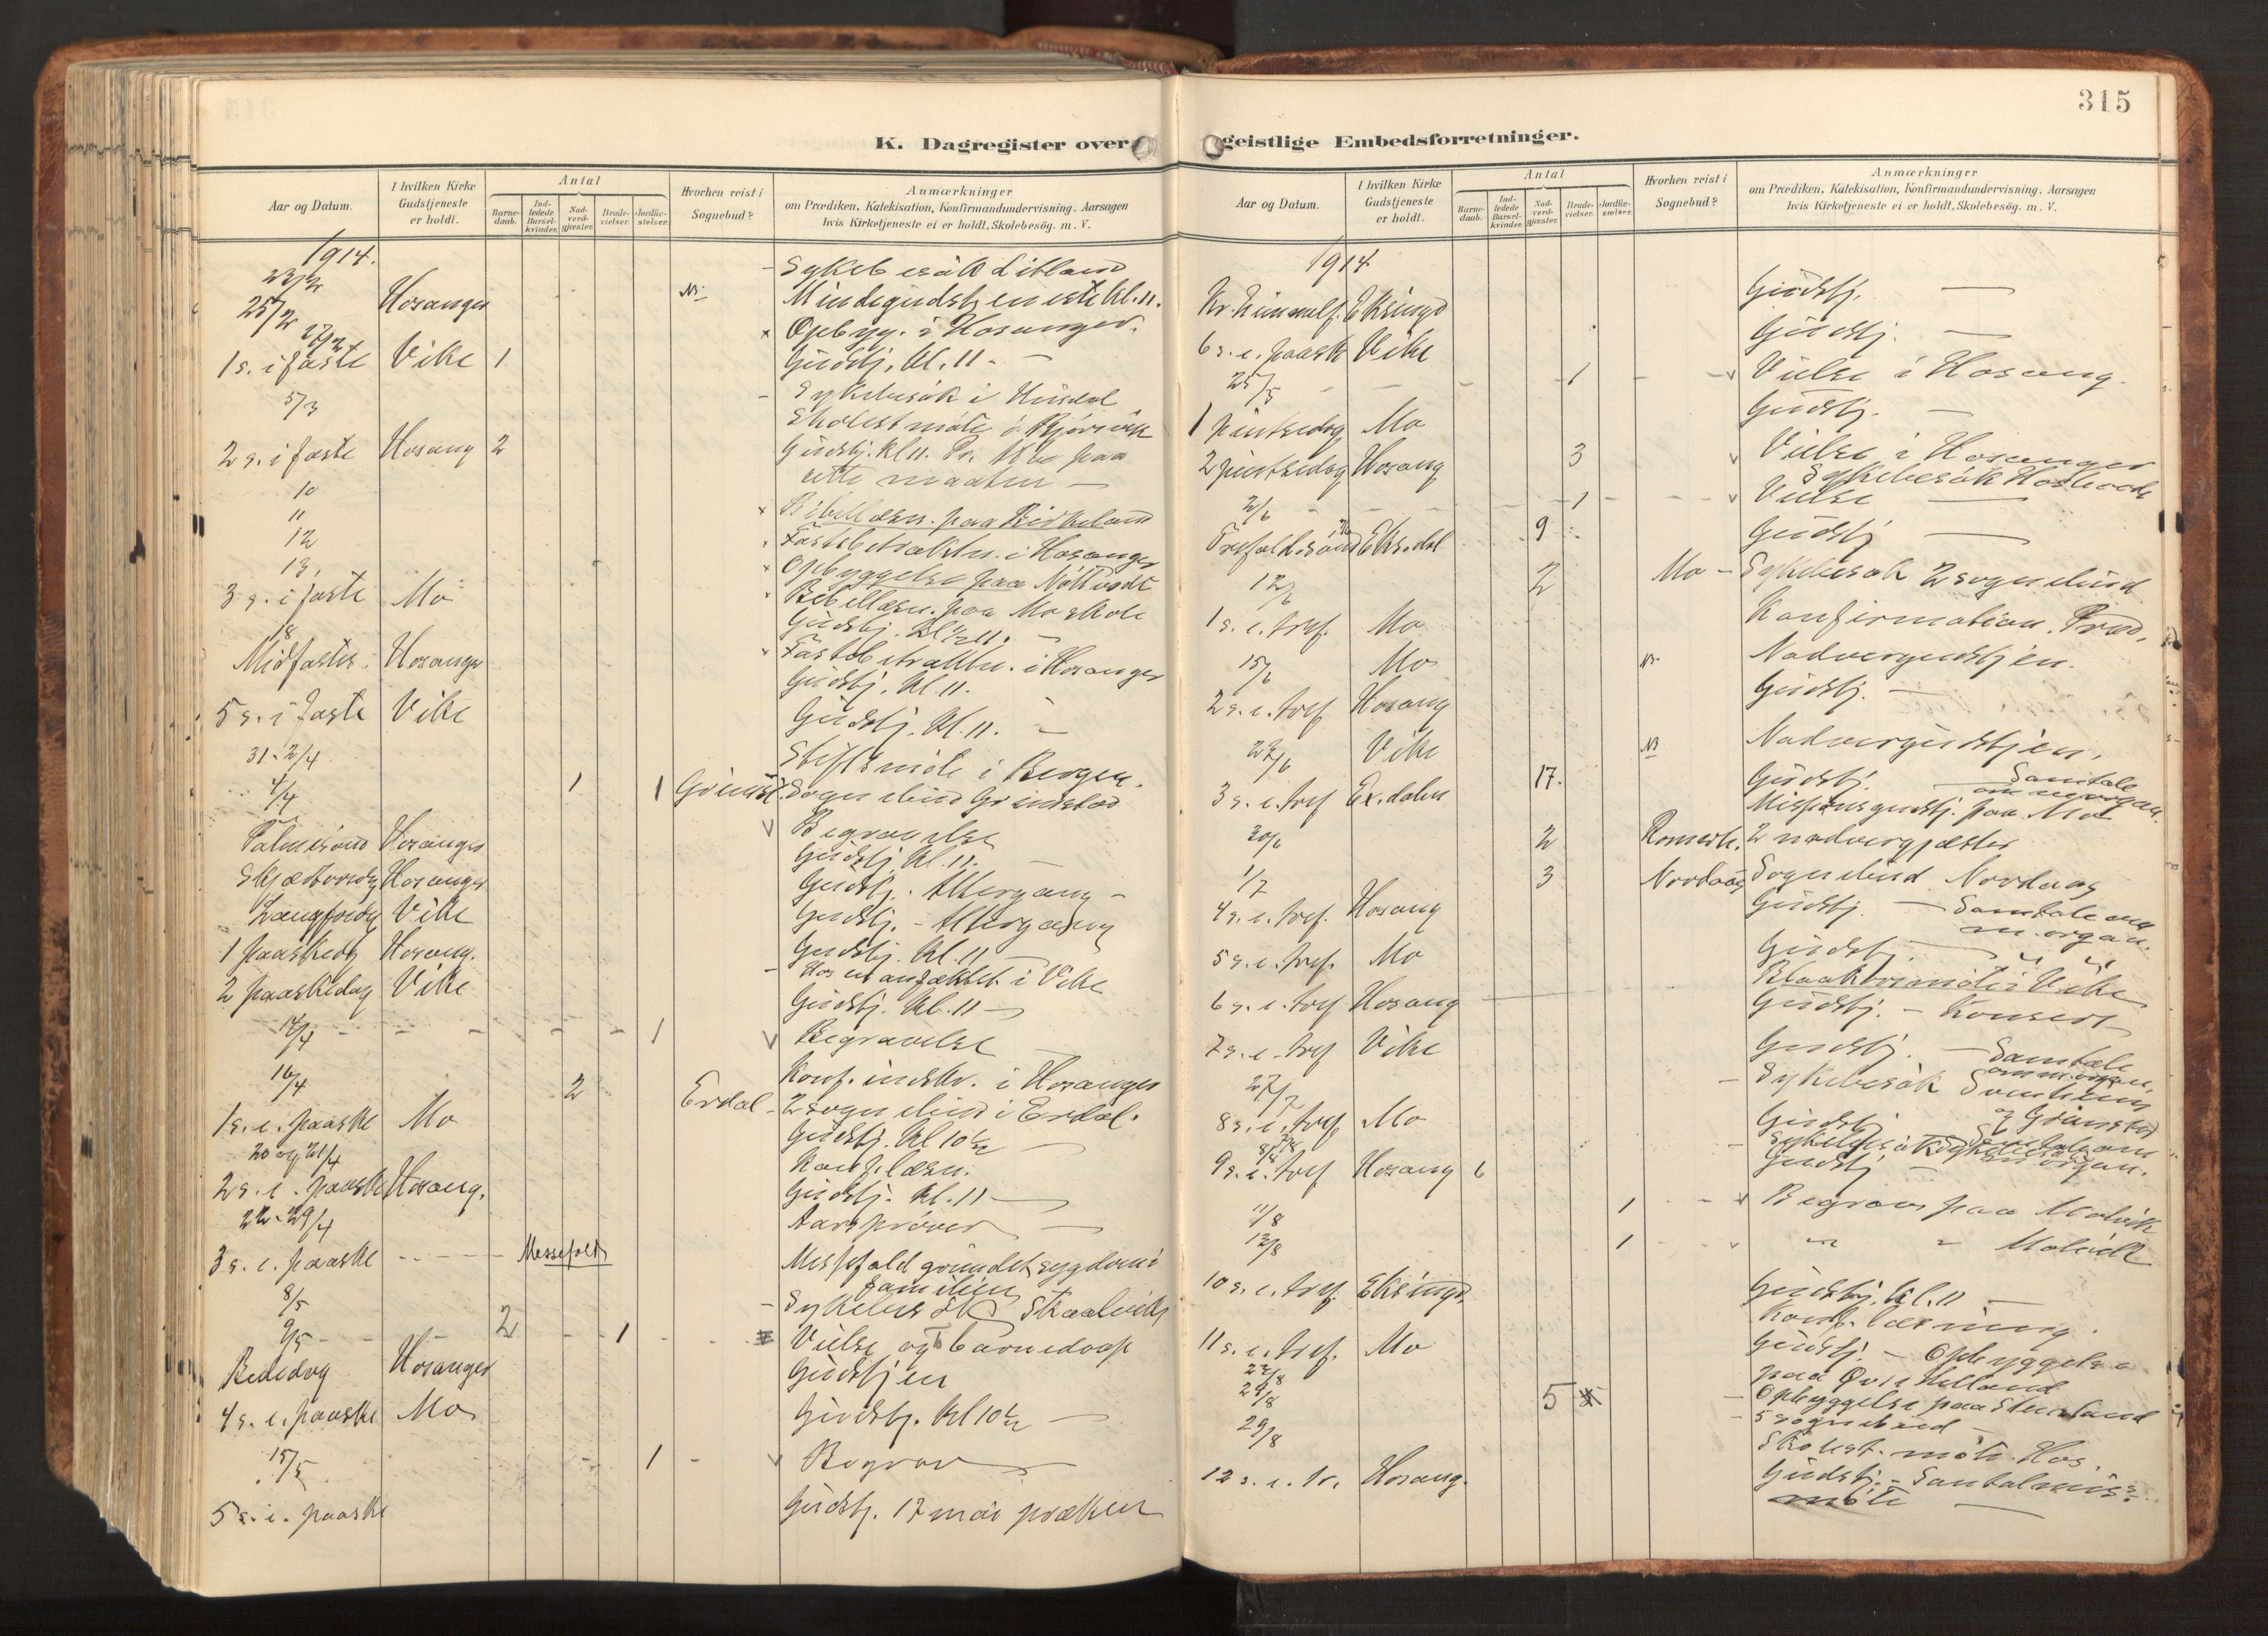 K. Dagregister over
Aar og Datum.
I hvilken Kirke Gudstjeneste er holdt.
Antal
Barne-daab.
Ind-ledede Barsel-kvinder.
Nad-verd-gjæster.
Brude-vielser.
Jordfæ-stelser.
Hvorhen reist i Sognebud?
Anmærkninger
om Prædiken, Katekisation, Konfirmandundervisning, Aarsagen
hvis Kirketjeneste ei er holdt, Skolebesög. m. V.
1914.
23/2 - Sykebesök
25/2 Hosanger Mindegudstjeneste kl. 11.
27/2 x Opbyg. i Hosanger.
1 s. i faste Vike 1 Gudstj. kl. 11 -
5/3 - Sykebesök i
Skolest möte i
2 s. i faste Hosang 2 Gudstj. kl 11. Pr. paa
rette maaten
10 x Bibellæsn. paa Birkeland
11 x Fastebetraktn. i Hosanger
12 x Opbyggelse paa
13, x Bibellæsn. paa Mo skole
3 s. i faste Mo Gudstj. Kl 1/2 11. -
18 x Fastebetraktn. i Hosanger
Midfaste. Hosanger Gudstj. kl. 11.
5 s. i faste Vike Gudstj. kl. 11. -
31-2/4 Stiftsmöte i Bergen.
4/4 1 1 Sognebud Grindstad
v Begravelse
Palmesönd Hosanger Gudstj. kl. 11. -
Skjærtorsdg Hosanger Gudstj. Altergang -
Langfredg Vike Gudstj. - Altergang
1 paaskedg Hosang. Gudstj. kl. 11
- Hos en anfæktet i Vike
2 paaskedag Vike Gudstj. kl. 11 -
14/4 - - - - - 1 v Begravelse
16/4 Konf. indskr. i Hosanger
2 Erdal - 2 sognebud i Erdal.
1 s. e. paaske Mo Gudstj. kl 10 1/2 -
20 og 21/4 Konf. læsn.
2 s. e. paaske Hosang. Gudstj. kl. 11 -
22-29/4 Aarspröver -
3 s. e. paaske - - - - Messefald Messefald grundet sygdom i
familien
8/5 - Sykebesök
9/5 - - - 2 - - 1 - - Vielse og barnedaap
Bededag Hosanger Gudstjen
4 s. e. paaske Mo Gudstj. kl 10 1/2 -
15/5 - 1 - v Begrav
5 s. e. paaske Gudstj. 17 mai præken
315
geistlige Embedsforretninger.
Aar og Datum.
I hvilken Kirke Gudstjeneste er holdt.
Antal
Barne-daab.
Ind-ledede Barsel-kvinder.
Nad-verd-gjæster.
Brude-vielser.
Jordfæ-stelser.
Hvorhen reist i Sognebud?
Anmærkninger
om Prædiken, Katekisation, Konfirmandundervisning, Aarsagen
hvis Kirketjeneste ei er holdt, Skolebesög. m. V.
1914
Kr. himmelf. Eksingd Gudstj. -
6 s. e. paask Vike Gudstj. -
25/5 - - - 1 - - v Vielse i Hosang.
1 pintsedag Mo Gudstj. -
2 pintsedag Hosang 3 v Vielse i Hosanger
Sykebesök
2/6 - - - 1 - - - v Vielse -
Trefold.sönd Eks.dal 9 Gudstj -
12/6 2 Mo - Sykebesök 2 sognebud
1 s. e. tref. Mo Konfirmation. Præd.
15/6 Mo Nadvergudstjen.
2 s. e. tref Hosang Gudstj. -
22/6 Vike Nadvergudstjen.
3 s. e. tref Ex. dalen 17. Gudstj. - Samtale
om m.organ.
Missionsgudstj. paa Mo
30/6 2 2 nadvergjæster
1/7 3 Nordaas Sognebud Nordaas
4 s. e. tref. Hosang Gudstj. - Samtale om
m. organ.
5 s. e. tref. Mo Gudstj. -
Blaakorsmöte i Vike
6 s. e. tref Hosang Gudstj. - Konsert
7 s. e. tref Vike Gudstj. - Samtale
om m.organ.
27/7 - Sykebesök
og Grinstad
8 s. e. tref. Mo Gudstj. - Samtale om
m. organ.
9 s. e. tref Hosang 6 Gudstj -
11/8 1 - v Begrav paa
12/8 1 - v
10 s. e. tref. Eksingd. Gudstj. kl. 11 -
Konf. læsning.
11 s. e. tref. Mo Gudstj. - Opbyggelse
paa Övre Helland
- Opbyggelse paa
5 - 5 sognebud -
29/8 Skolest. möte Hos.
12 s. e. tr. Hosang. Gudstj. - Santalmis-
möte -